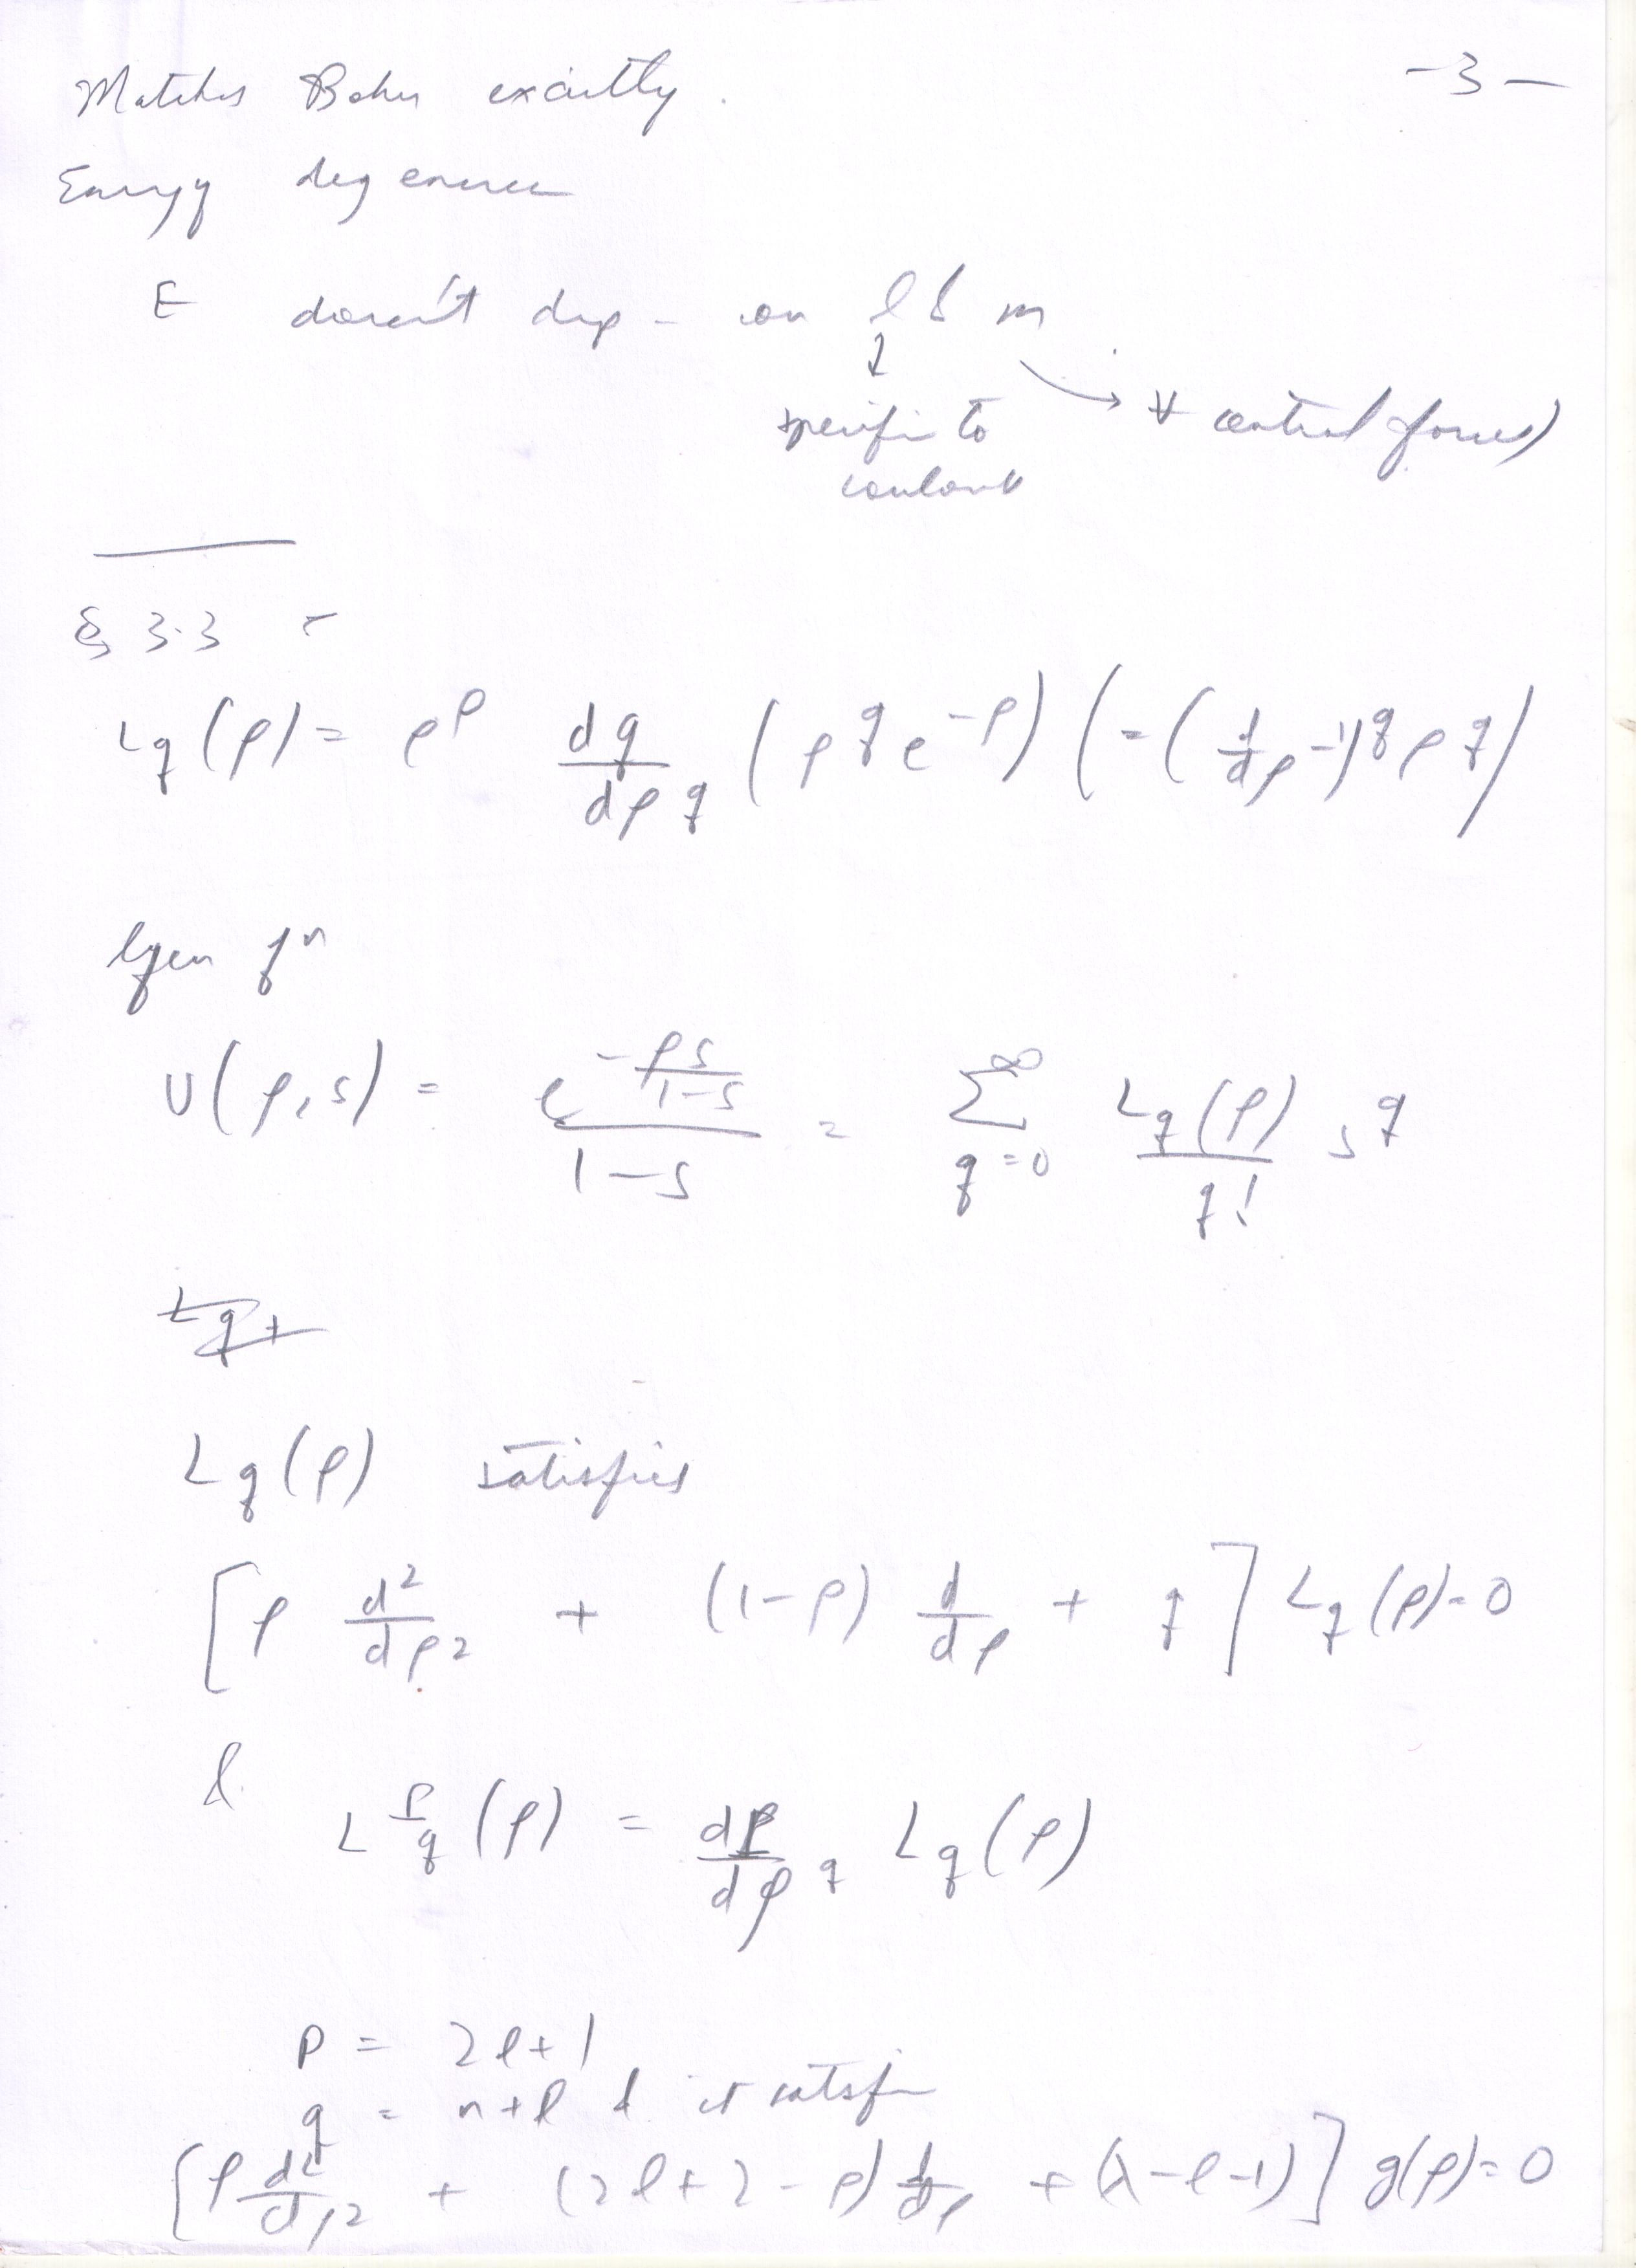 -3-
Matches Bohr exactly.
Energy degenerac
E doesn't dep - on l & m
↓ → ∀ central forces)
specific to
coulomb
§ 3.3 -
Lq(ρ) = e^ρ d^q/dρ^q (ρ^q e^-ρ) (= (d/dρ -1)^q ρ^q)
Gen fⁿ
U(ρ,s) = e^(-ρs/(1-s)) / (1-s) = Σ_{q=0}^∞ Lq(ρ)/q! s^q
Lq+
Lq(ρ) satisfies
[ρ d²/dρ² + (1-ρ) d/dρ + q] Lq(ρ)=0
& L^p_q(ρ) = d^p/dρ^q Lq(ρ)
p = 2l+1
q = n+l & it satisfi
[ρ d²/dρ² + (2l+2-ρ) d/dρ + (λ-l-1)] g(ρ)=0